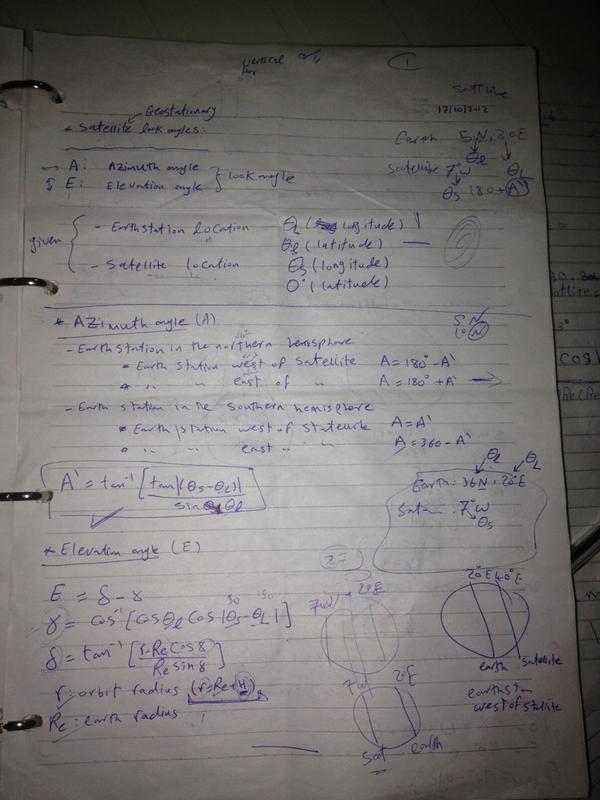 vertical
Hor
1
Sattlite
17/10/2012
Geostationary
* Satellite look angles:
Earth 5°N, 30E
θl
A: Azimuth angle
E: Elevation angle } look angle
Satellite 7°W θL
θs 180+A'
given { - Earth station location θL (longitude)
θl (latitude)
- Satellite location θs (longitude)
0° (latitude)
* AZimuth angle (A)
- Earth station in the northern hemisphere
* Earth station west of satellite A = 180° - A'
* " " east of " A = 180° + A'
- Earth station in the southern hemisphere
* Earth station west of statelite A = A'
* " " east " " A = 360 - A'
A' = tan⁻¹ [ tan|(θs-θL)| / sin θl ]
θl θL
Earth: 36N, 20°E
Sat : 7°W
θs
* Elevation angle (E)
27
E = δ - γ
γ = cos⁻¹ [cos θl cos |θs-θL|]
δ = tan⁻¹ [ r-Re cos γ / Re sin γ ]
r: orbit radius (r=Re+H)
Re: earth radius
7W 20E
20°E 40°E
earth satellite
earth stan
west of stallite
7W 20E
sat earth